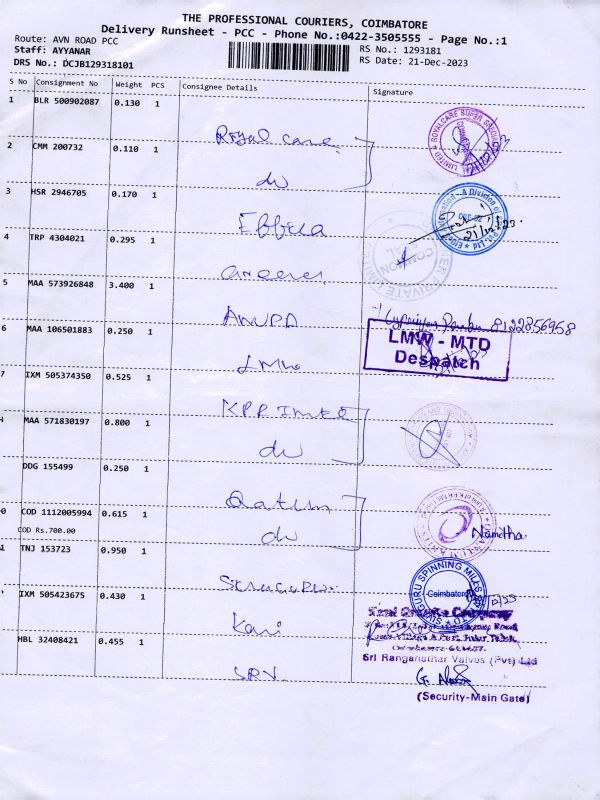 THE PROFESSIONAL COURIERS, COIMBATORE
Delivery Runsheet - PCC - Phone No.:0422-3505555 - Page No.:1
Route: AVN ROAD PCC
RS No.: 1293181
Staff: AYYANAR
RS Date: 21-Dec-2023
DRS No.: DCJB129318101
S No Consignment No Weight PCS Consignee Details Signature
1 BLR 500902087 0.130 1 Royal care
2 CMM 200732 0.110 1 do
3 HSR 2946705 0.170 1 Effica
4 TRP 4304021 0.295 1
5 MAA 573926848 3.400 1 ANUPA 8122856958
6 MAA 106501883 0.250 1 LMW
LMW - MTD
Despatch
7 IXM 505374350 0.525 1 KPR
MAA 571830197 0.800 1 do
DDG 155499 0.250 1
0 COD 1112005994 0.615 1 do Namitha
COD Rs.700.00
1 TNJ 153723 0.950 1
SIVAGURU SPINNING MILLS
Coimbatore
IXM 505423675 0.430 1 Kavi
HBL 32408421 0.455 1 SRV
Sri Ranganathar Valves (Pvt) Ltd
(Security-Main Gate)